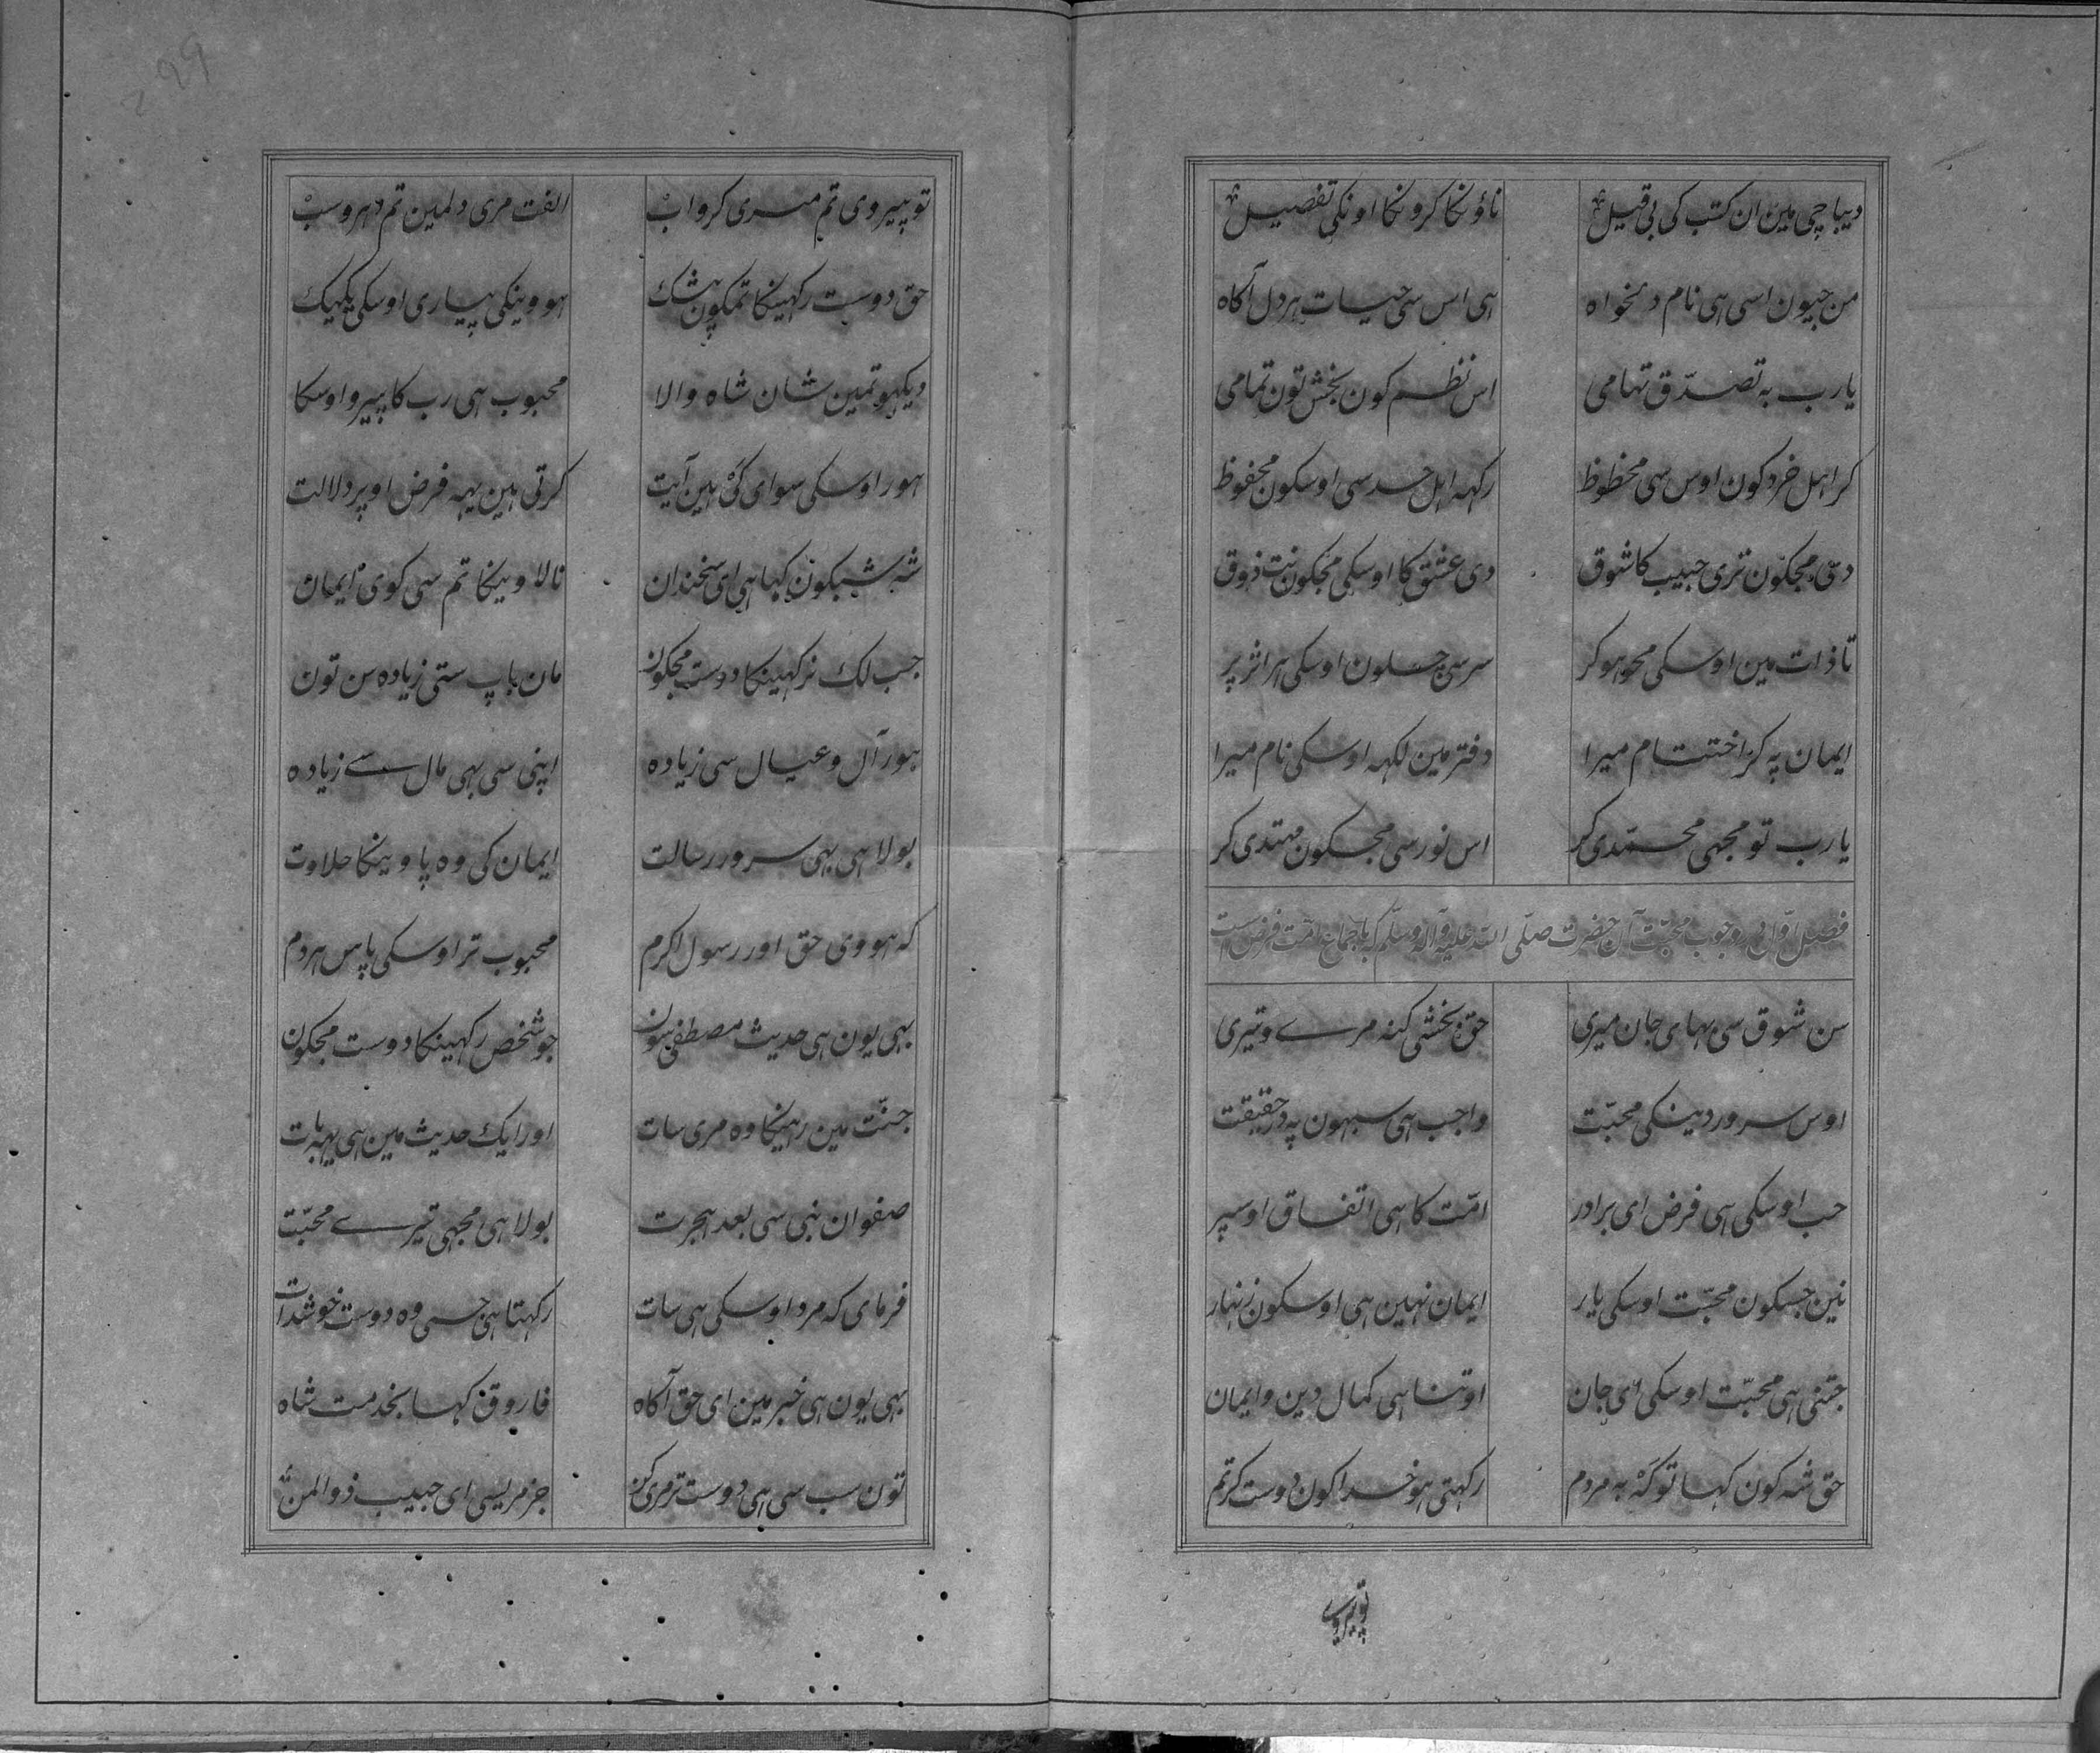 دیباچی مین ان کتب کی بی قیل ناؤنکا کرونکا اونکی تفصیل
من جیون اسی ہی نام دلخواہ ہی اس سی حیات ہر دل آکاہ
یارب بہ تصدّق تہامی اس نظم کون بخش تون تمامی
کر اہل خرد کون اوس سی محظوظ رکہہ اہل حسد سی اوسکون محفوظ
دی مجکون تری حبیب کا شوق دی عشق کا اوسکی مجکون نت ذوق
تا ذات مین اوسکی محو ہو کر سر سی چلون اوسکی ہر اثر پر
ایمان پہ کر اختتام میرا دفتر مین لکہہ اوسکی نام میرا
یارب تو مجہی محمّدی کر اس نور سی مجکون مہتدی کر
فصل اوّل در وجوب محبّت آن حضرت صلّی اللہ علیہ وآلہ وسلّم کہ باجماع امّت فرض است
سن شوق سی بہای جان میری حق بخشی کنہ مرے و تیری
اوس سرور دینکی محبّت واجب ہی سبہون پہ در حقیقت
حب اوسکی ہی فرض ای برادر امّت کا ہی اتفاق اوسپر
نین جسکون محبّت اوسکی یار ایمان نہین ہی اوسکون زنہار
جتنی ہی محبّت اوسکی ای جان اوتنا ہی کمال دین و ایمان
حق شہ کون کہا تو کہہ بہ مردم رکہتی ہو خدا کون دوست کر تم
تو پیروی
تو پیروی تم مری کرو اب الفت مری دلمین تم دہرو سب
حق دوست رکہینکا تمکون بیشک ہووینکی پیاری اوسکی یک یک
دیکہو تمین شان شاہ والا محبوب ہی رب کا پیرو اوسکا
ہور اوسکی سوای کئ ہین آیت کرتی ہین یہہ فرض اوپر دلالت
شہ سبکون کہا ہی ای سخندان نالاوینکا تم سی کوی ایمان
جب لک نرکہینکا دوست مجکون مان باپ ستی زیادہ سن تون
ہور آل و عیال سی زیادہ اپنی سی بہی مال سے زیادہ
بولا ہی بہی سرور رسالت ایمان کی وہ پاوینکا حلاوت
کہ ہووی حق اور رسول اکرم محبوب تر اوسکی پاس ہر دم
بہی یون ہی حدیث مصطفی جو شخص رکہینکا دوست مجکون
جنّت مین رہینکا وہ مری سات اور ایک حدیث مین ہی یہہ بات
صفوان نبی سی بعد ہجرت بولا ہی مجہی تیرے محبّت
فرمای کہ مرد اوسکی ہی سات رکہتا ہی جسی وہ دوست خوش ذات
بہی یون ہی خبر مین ای حق آکاہ فاروق کہا بخدمت شاہ
تون سب سی ہی دوستر مری کن جز مریسی ای حبیب ذو المن